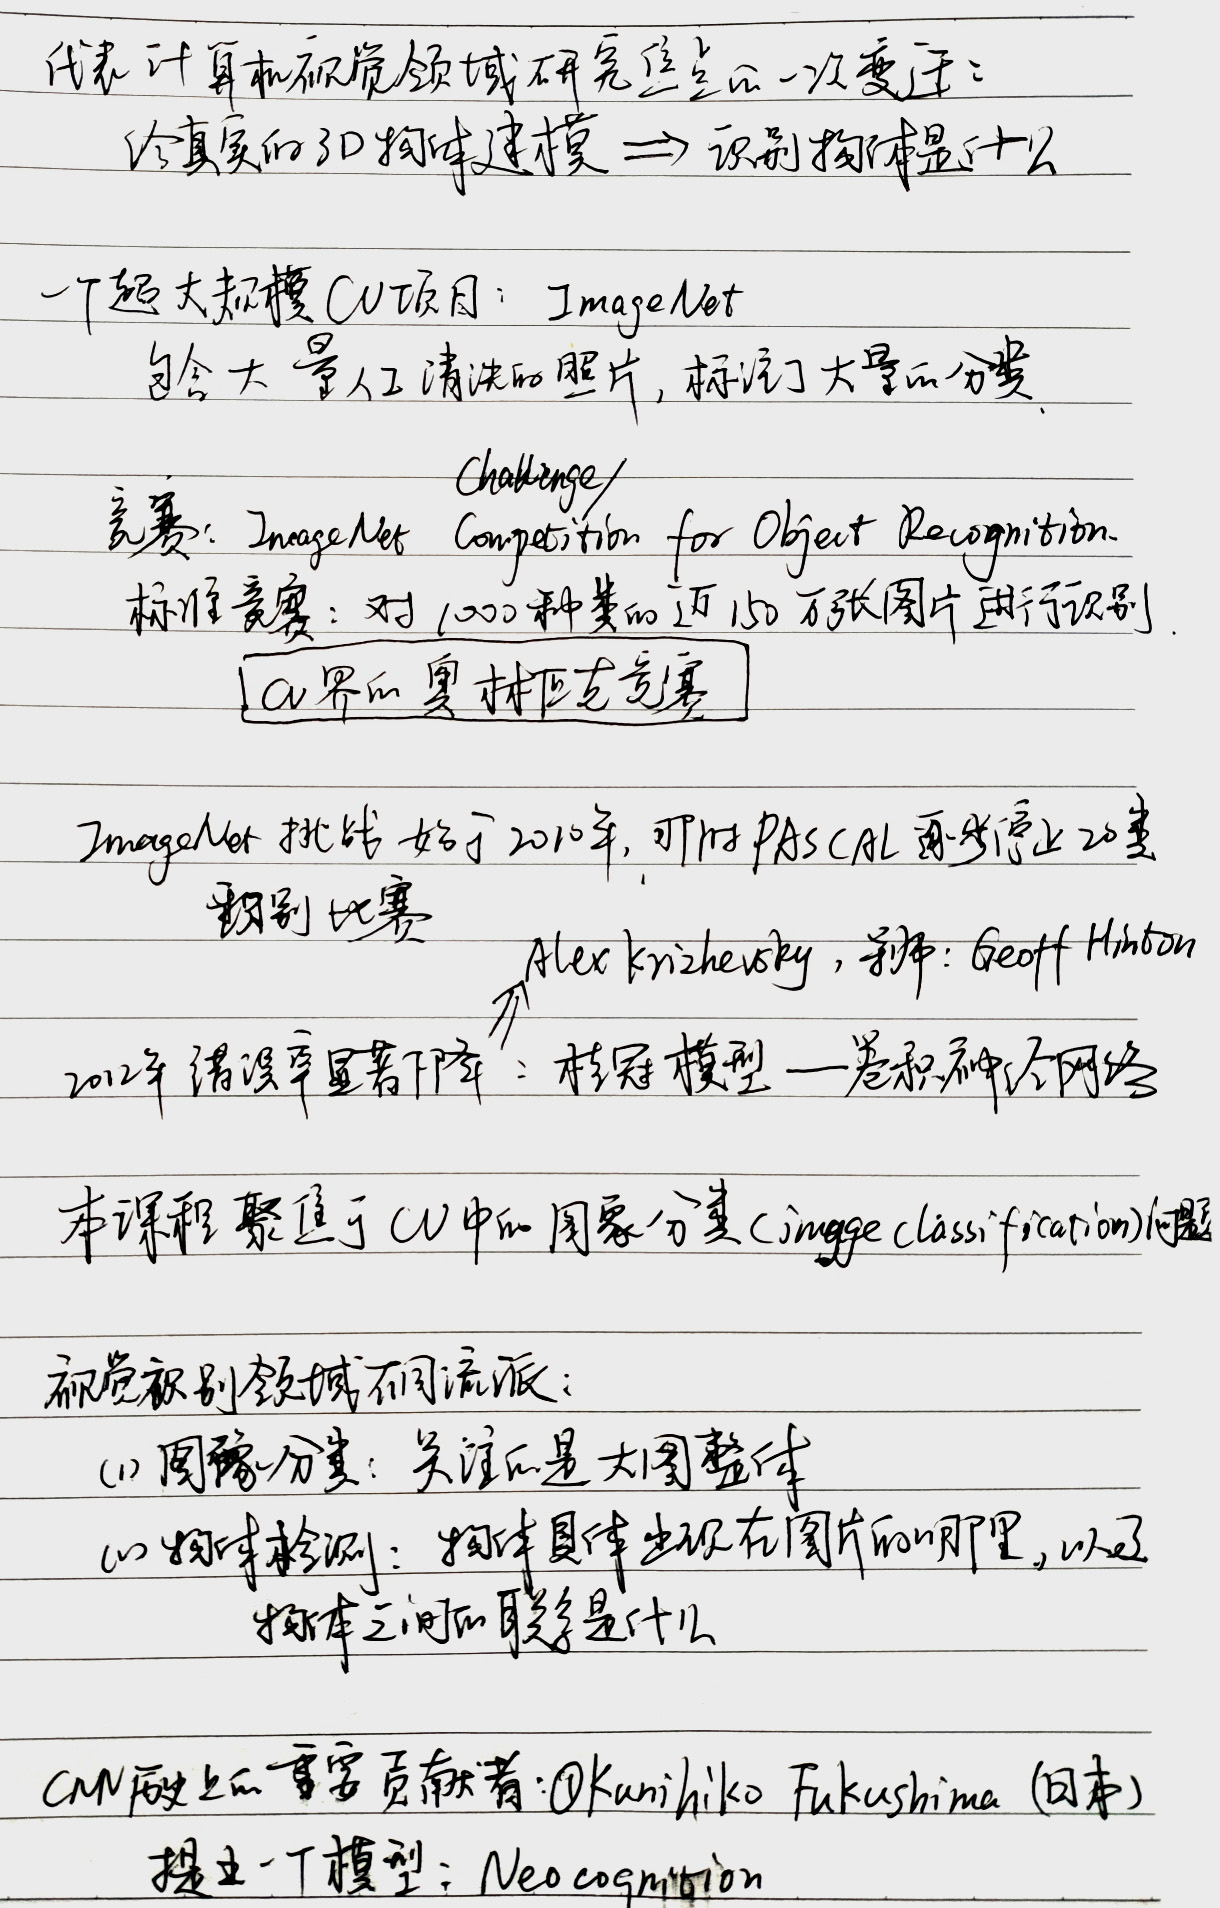 代表计算机视觉领域研究焦点的一次变迁：
给真实的3D物体建模 ⇒ 识别物体是什么
一个超大规模CV项目：ImageNet
包含大量人工清洗的照片，标注了大量的分类.
Challenge/
竞赛：ImageNet Competition for Object Recognition.
标准竞赛：对1000种类的近150万张图片进行识别.
CV界的奥林匹克竞赛
ImageNet 挑战 始于2010年，那时PASCAL 停止20类
识别比赛
Alex Krizhevsky，导师：Geoff Hinton
2012年错误率显著下降：桂冠模型—卷积神经网络
本课程聚焦于CV中的图象分类(image classification)问题
视觉识别领域不同流派：
(1) 图像分类：关注的是大图整体
(2) 物体检测：物体具体出现在图片的哪里，以及
物体之间的联系是什么
CNN历史上的重要贡献者：①Kunihiko Fukushima (日本)
提出一个模型：Neocognition